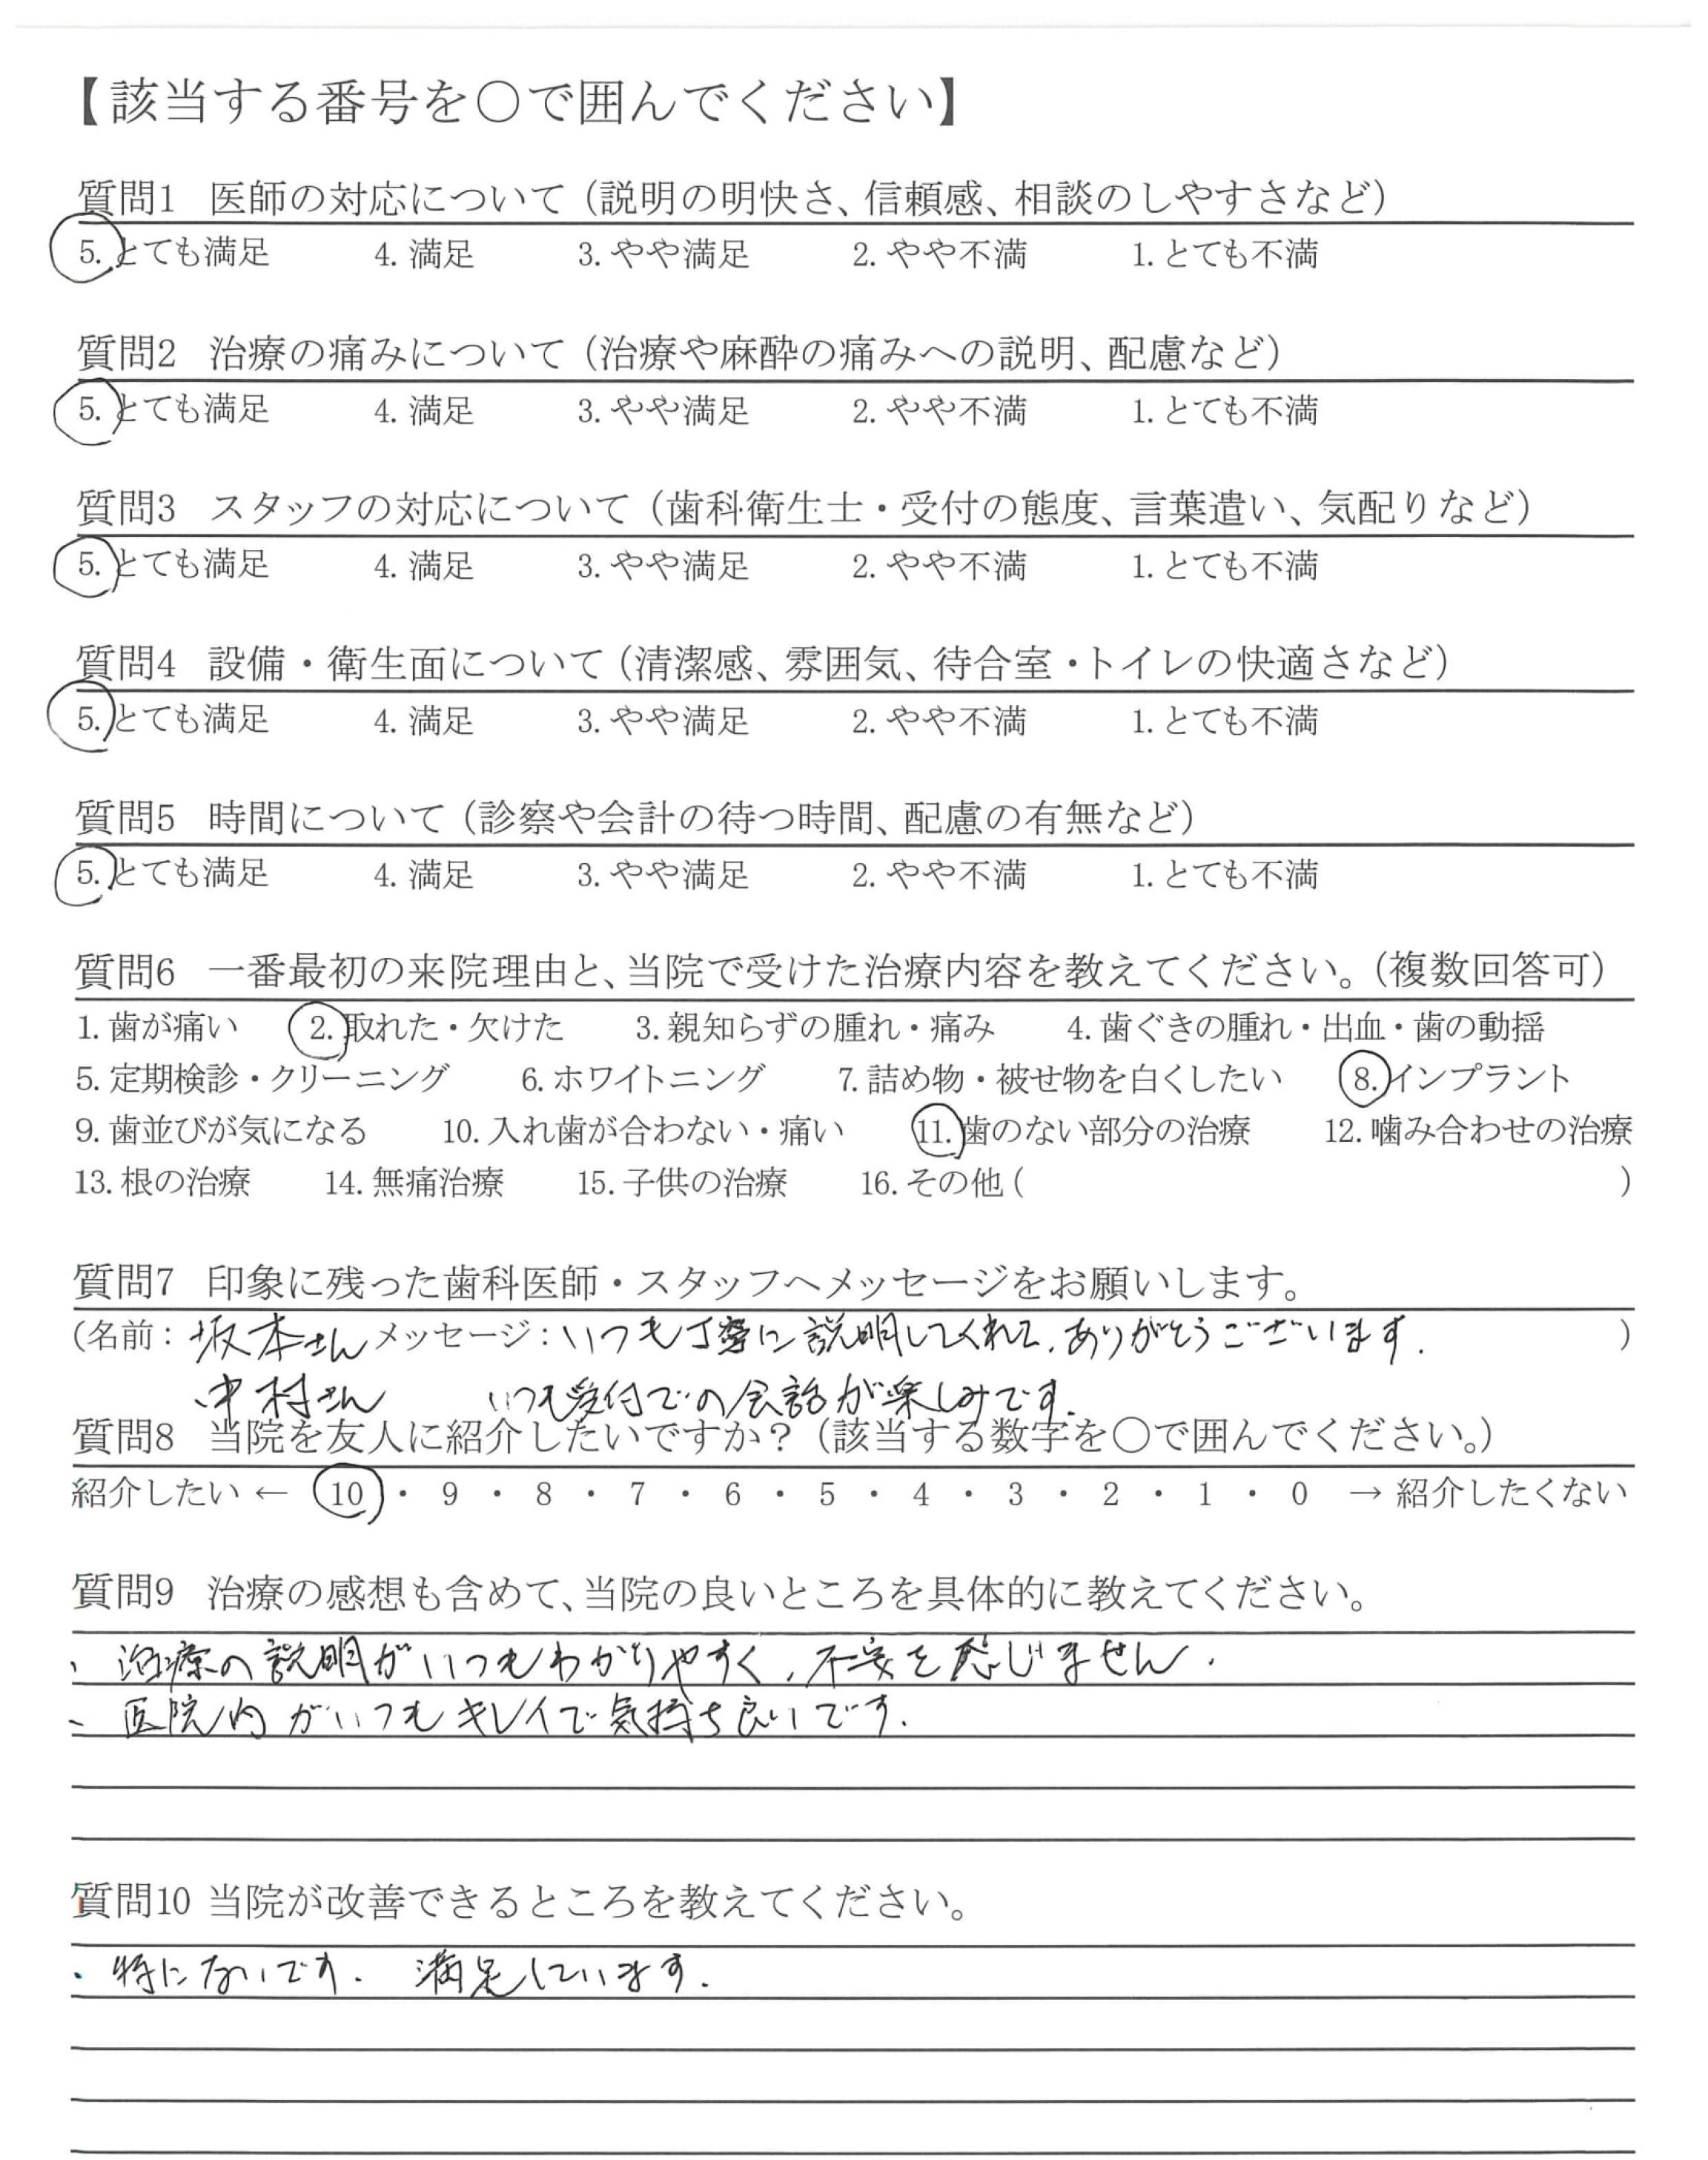 【該当する番号を〇で囲んでください】
質問1 医師の対応について（説明の明快さ、信頼感、相談のしやすさなど）
5. とても満足 4. 満足 3. やや満足 2. やや不満 1. とても不満
質問2 治療の痛みについて（治療や麻酔の痛みへの説明、配慮など）
5. とても満足 4. 満足 3. やや満足 2. やや不満 1. とても不満
質問3 スタッフの対応について（歯科衛生士・受付の態度、言葉遣い、気配りなど）
5. とても満足 4. 満足 3. やや満足 2. やや不満 1. とても不満
質問4 設備・衛生面について（清潔感、雰囲気、待合室・トイレの快適さなど）
5. とても満足 4. 満足 3. やや満足 2. やや不満 1. とても不満
質問5 時間について（診察や会計の待つ時間、配慮の有無など）
5. とても満足 4. 満足 3. やや満足 2. やや不満 1. とても不満
質問6 一番最初の来院理由と、当院で受けた治療内容を教えてください。（複数回答可）
1. 歯が痛い 2. 取れた・欠けた 3. 親知らずの腫れ・痛み 4. 歯ぐきの腫れ・出血・歯の動揺
5. 定期検診・クリーニング 6. ホワイトニング 7. 詰め物・被せ物を白くしたい 8. インプラント
9. 歯並びが気になる 10. 入れ歯が合わない・痛い 11. 歯のない部分の治療 12. 噛み合わせの治療
13. 根の治療 14. 無痛治療 15. 子供の治療 16. その他（ ）
質問7 印象に残った歯科医師・スタッフへメッセージをお願いします。
（名前：坂本さん メッセージ：いつも丁寧に説明してくれて、ありがとうございます. ）
中村さん いつも受付での会話が楽しみです.
質問8 当院を友人に紹介したいですか？（該当する数字を〇で囲んでください。）
紹介したい ← 10 ・ 9 ・ 8 ・ 7 ・ 6 ・ 5 ・ 4 ・ 3 ・ 2 ・ 1 ・ 0 → 紹介したくない
質問9 治療の感想も含めて、当院の良いところを具体的に教えてください。
、治療の説明がいつもわかりやすく、不安を感じません.
、医院内がいつもキレイで気持ち良いです.
質問10 当院が改善できるところを教えてください。
・特にないです. 満足しています.